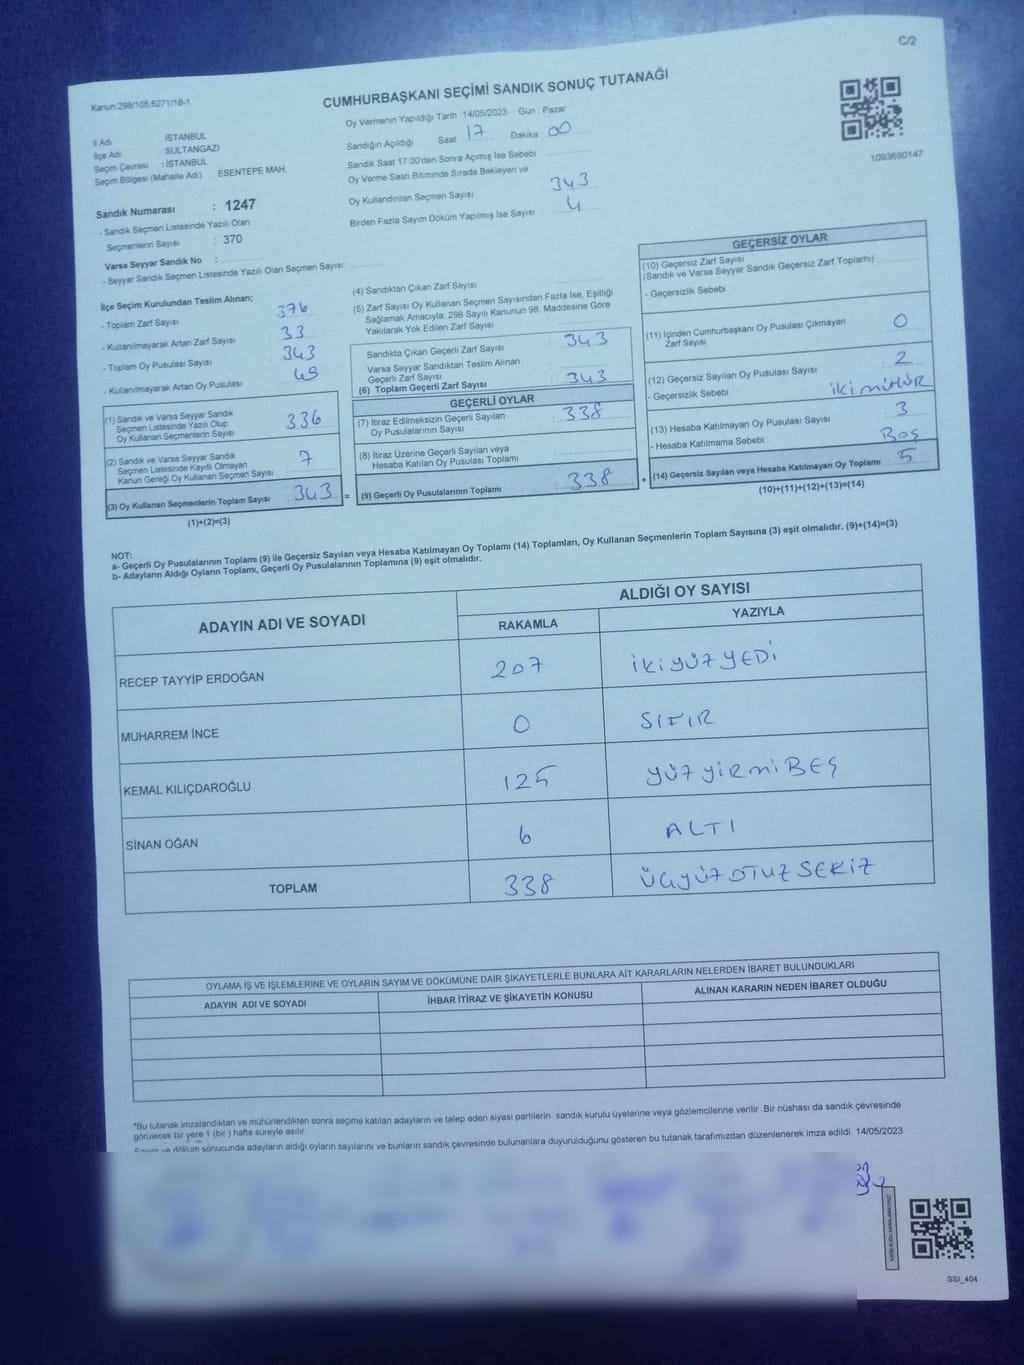 C/2
Kanun:298/105,6271/18-1
CUMHURBAŞKANI SEÇİMİ SANDIK SONUÇ TUTANAĞI
Oy Vermenin Yapıldığı Tarih :14/05/2023 Gün : Pazar
İl Adı : İSTANBUL
İlçe Adı : SULTANGAZİ
Seçim Çevresi : İSTANBUL
Seçim Bölgesi (Mahalle Adı) : ESENTEPE MAH.
Sandık Numarası : 1247
- Sandık Seçmen Listesinde Yazılı Olan
Seçmenlerin Sayısı : 370
Varsa Seyyar Sandık No :
- Seyyar Sandık Seçmen Listesinde Yazılı Olan Seçmen Sayısı:
Sandığın Açıldığı Saat 17 Dakika 00
Sandık Saat 17:00'den Sonra Açımış İse Sebebi :
Oy Verme Saati Bitiminde Sırada Bekleyen ve
Oy Kullandırılan Seçmen Sayısı 343
Birden Fazla Sayım Döküm Yapılmış İse Sayısı 4
1093690147
İlçe Seçim Kurulundan Teslim Alınan;
- Toplam Zarf Sayısı : 376
- Kullanılmayarak Artan Zarf Sayısı : 33
- Toplam Oy Pusulası Sayısı : 343
- Kullanılmayarak Artan Oy Pusulası : 49
(1) Sandık ve Varsa Seyyar Sandık
Seçmen Listesinde Yazılı Olup
Oy Kullanan Seçmenlerin Sayısı 336
(2) Sandık ve Varsa Seyyar Sandık
Seçmen Listesinde Kayıtlı Olmayan
Kanun Gereği Oy Kullanan Seçmen Sayısı : 7
(3) Oy Kullanan Seçmenlerin Toplam Sayısı : 343 =
(1)+(2)=(3)
(4) Sandıktan Çıkan Zarf Sayısı
(5) Zarf Sayısı Oy Kullanan Seçmen Sayısından Fazla İse, Eşitliği
Sağlamak Amacıyla; 298 Sayılı Kanunun 98. Maddesine Göre
Yakılarak Yok Edilen Zarf Sayısı
Sandıkta Çıkan Geçerli Zarf Sayısı : 343
Varsa Seyyar Sandıktan Teslim Alınan
Geçerli Zarf Sayısı
(6) Toplam Geçerli Zarf Sayısı : 343
GEÇERLİ OYLAR
(7) İtiraz Edilmeksizin Geçerli Sayılan
Oy Pusulalarının Sayısı : 338
(8) İtiraz Üzerine Geçerli Sayılan veya
Hesaba Katılan Oy Pusulası Toplamı
(9) Geçerli Oy Pusulalarının Toplamı : 338 +
GEÇERSİZ OYLAR
(10) Geçersiz Zarf Sayısı
(Sandık ve Varsa Seyyar Sandık Geçersiz Zarf Toplamı) :
- Geçersizlik Sebebi :
(11) İçinden Cumhurbaşkanı Oy Pusulası Çıkmayan
Zarf Sayısı : 0
(12) Geçersiz Sayılan Oy Pusulası Sayısı : 2
- Geçersizlik Sebebi : iki MÜHÜR
(13) Hesaba Katılmayan Oy Pusulası Sayısı : 3
- Hesaba Katılmama Sebebi : BOŞ
(14) Geçersiz Sayılan veya Hesaba Katılmayan Oy Toplamı : 5
(10)+(11)+(12)+(13)=(14)
NOT:
a- Geçerli Oy Pusulalarının Toplamı (9) ile Geçersiz Sayılan veya Hesaba Katılmayan Oy Toplamı (14) Toplamları, Oy Kullanan Seçmenlerin Toplam Sayısına (3) eşit olmalıdır. (9)+(14)=(3)
b- Adayların Aldığı Oyların Toplamı, Geçerli Oy Pusulalarının Toplamına (9) eşit olmalıdır.
ADAYIN ADI VE SOYADI
ALDIĞI OY SAYISI
RAKAMLA YAZIYLA
RECEP TAYYİP ERDOĞAN 207 İKİYÜZYEDİ
MUHARREM İNCE 0 SIFIR
KEMAL KILIÇDAROĞLU 125 YÜZYİRMİBEŞ
SİNAN OĞAN 6 ALTI
TOPLAM 338 ÜÇYÜZOTUZSEKİZ
OYLAMA İŞ VE İŞLEMLERİNE VE OYLARIN SAYIM VE DÖKÜMÜNE DAİR ŞİKAYETLERLE BUNLARA AİT KARARLARIN NELERDEN İBARET BULUNDUKLARI
ADAYIN ADI VE SOYADI İHBAR İTİRAZ VE ŞİKAYETİN KONUSU ALINAN KARARIN NEDEN İBARET OLDUĞU
*Bu tutanak imzalandıktan ve mühürlendikten sonra seçime katılan adayların ve talep eden siyasi partilerin sandık kurulu üyelerine veya gözlemcilerine verilir .Bir nüshası da sandık çevresinde
görülecek bir yere 1 (bir ) hafta süreyle asılır.
Sayım ve döküm sonucunda adayların aldığı oyların sayılarını ve bunların sandık çevresinde bulunanlara duyurulduğunu gösteren bu tutanak tarafımızdan düzenlenerek imza edildi. 14/05/2023
SSI_404